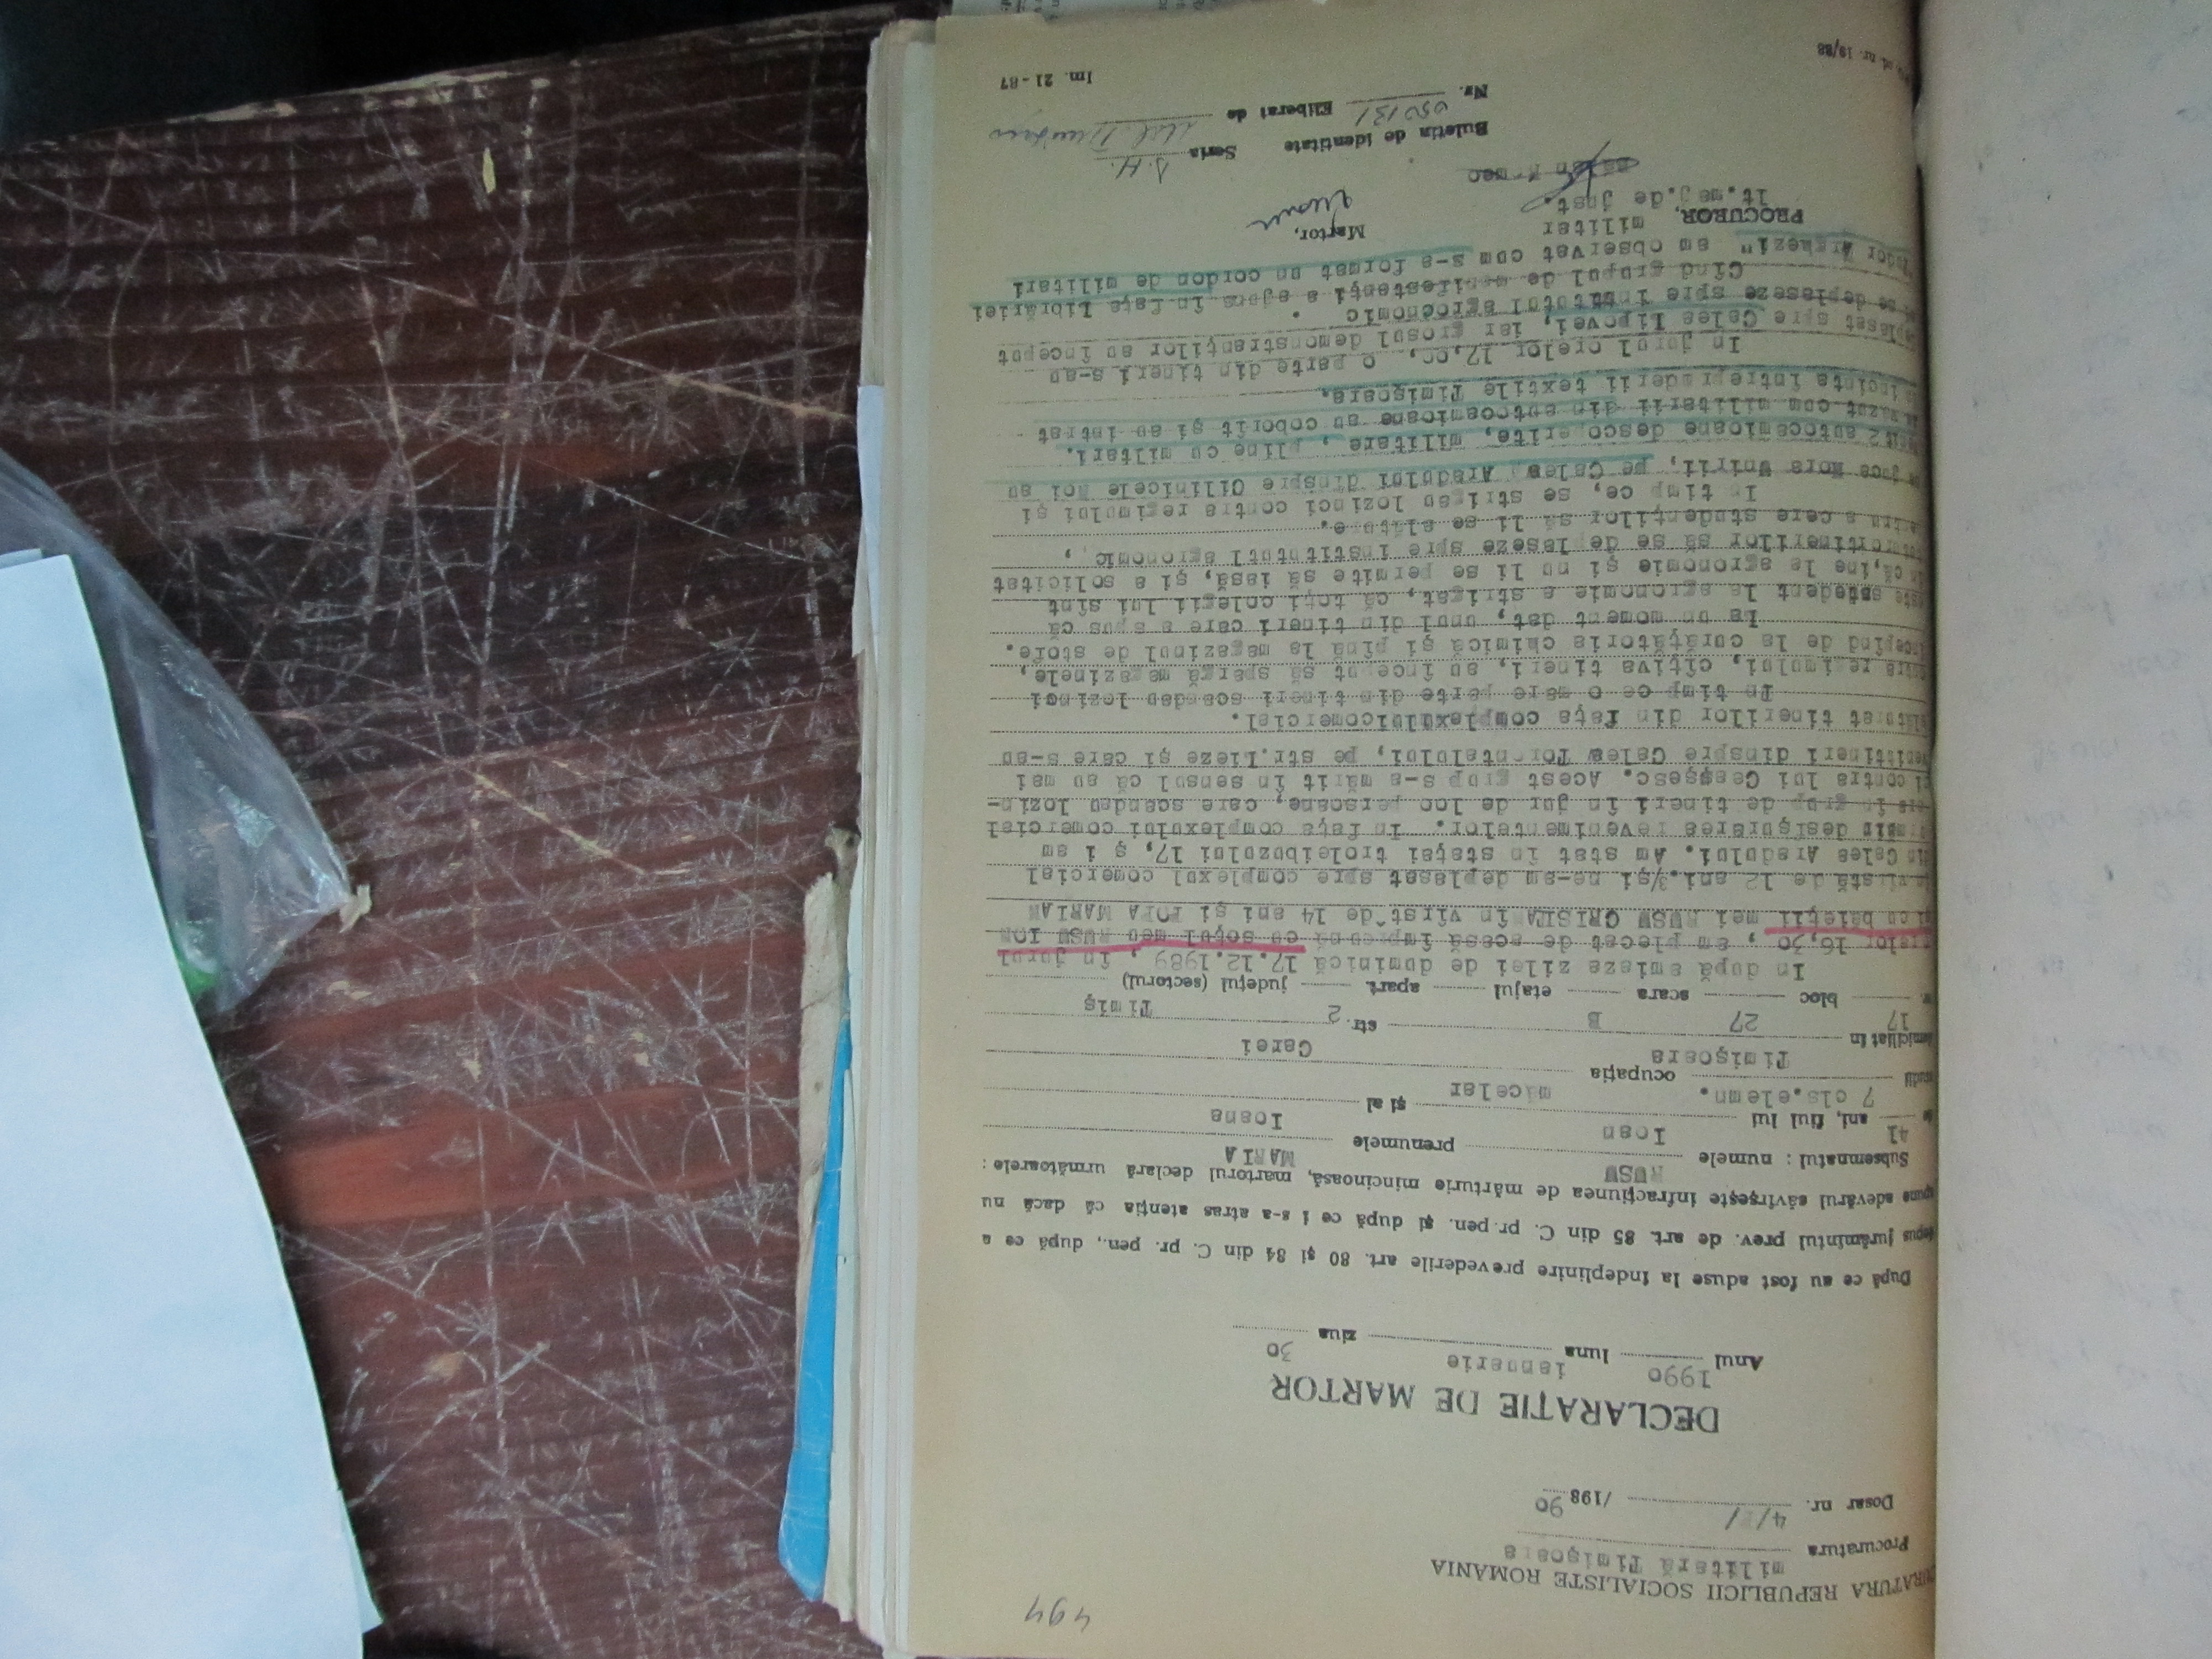 494
URATURA REPUBLICII SOCIALISTE ROMÂNIA
Procuratura militară Timişoara
Dosar nr. /198 90
DECLARAŢIE DE MARTOR
Anul 1990 luna ianuarie ziua 30
După ce au fost aduse la îndeplinire prevederile art. 80 şi 84 din C. pr. pen., după ce a
depus jurămîntul prev. de art. 85 din C. pr. pen. şi după ce i s-a atras atenţia că dacă nu
spune adevărul săvîrşeşte infracţiunea de mărturie mincinoasă, martorul declară următoarele :
Subsemnatul : numele RUSU prenumele MARIA
41 ani, fiul lui Ioan şi al Ioana
7 cls.elemn. ocupaţia măcelar
domiciliat în Timişoara Carei
17 27 B str. 2 Timiş
bloc scara etajul apart. judeţul (sectorul)
In după amiaza zilei de duminică 17.12.1989, în jurul
orelor 16,30, am plecat de acasă împreună cu soţul meu RUSU ION
şi cu băieţii mei RUSU CRISTIAN în vîrstă de 14 ani şi POPA MARIAN
în vîrstă de 12 ani şi ne-am deplasat spre complexul comercial
din Calea Aradului. Am stat în staţai troleibuzului 17, ş i am
desfşurarea revenimentelor. In faţa complexului comercial
era în grup de tineri în jur de 100 persoane, care scandau lozin-
ci contra lui Ceaşşesc. Acest grup s-a mărit în sensul că au mai
venittineri dinspre Calea Torontalului, pe str.Liege şi care s-au
alăturat tinerilor din faţa complexuluicomercial.
In timp ce o mare parte din tineri scandau lozinci
contra regimului, cîţiva tineri, au început să spargă magazinele,
începînd de la curăţătoria chimică şi pînă la magazinul de stofe.
La un moment dat, unul din tineri care a spus că
este student la agronomie a strigat, că toţi colegii lui sînt
la agronomie şi nu li se permite să iasă, şi a solicitat
tinerilor să se deplaseze spre institutul agronomic,
pentru a cere studenţilor să li se alăture.
In timp ce, se strigau lozinci contra regimului şi
se juca Hora Unirii, pe Calea Aradului dinspre Cilinicele Noi au
2 autocamioane descoperite, militare, pline cu militari.
văzut cum militarii din autocamioane au coborît şi au intrat
în incinta întreprinderii textile Timişoara.
In jurul orelor 17,00, o parte din tineri s-au
deplasat spre Calea Lipovei, iar grosul demonstranţilor au început
să se deplaseze spre intitutul agronomic.
Cînd grupul de manifestanţi a ajuns în faţa Librăriei
Tudor Arghezi" am observat cum s-a format un cordon de militari
PROCUROR, militar
lt.maj.de just.
Martor,
Buletin de identitate Seria
Nr. 050131 Eliberat de
nr. 19/88
Im. 21-87